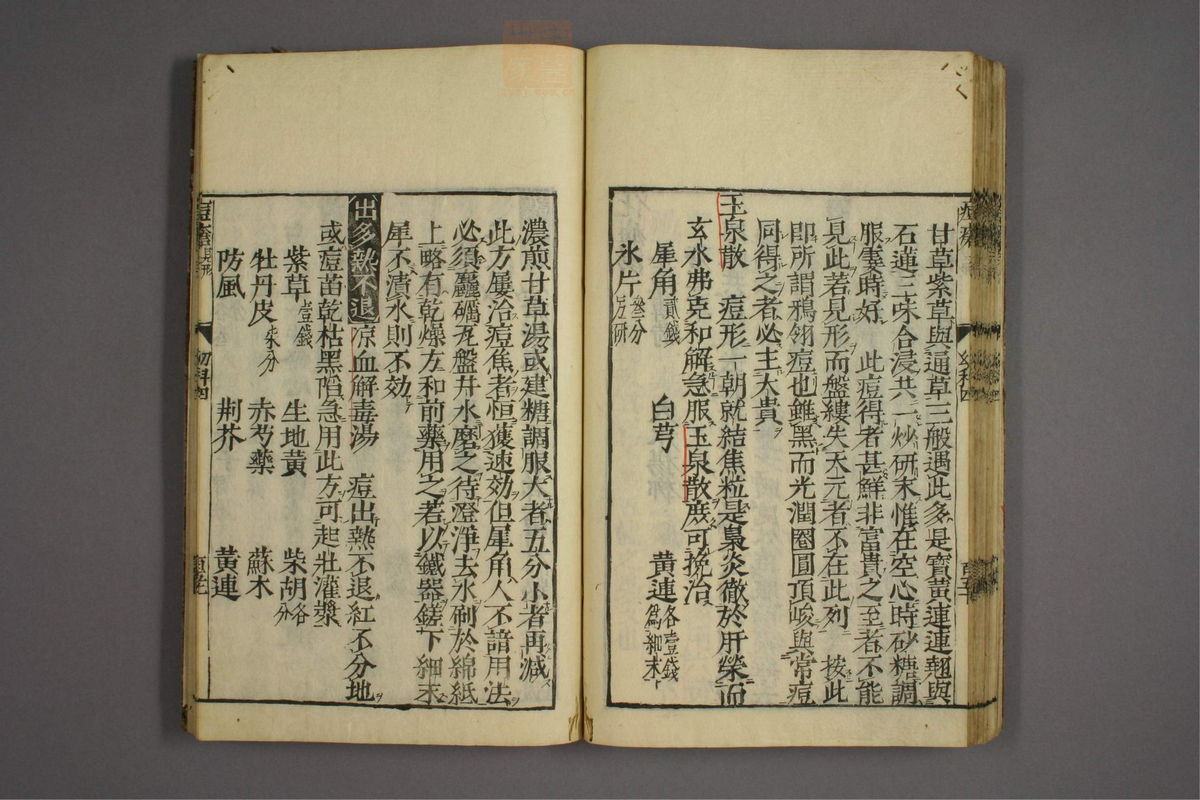 甘草紫草與通草三般遇此多是寶黃連連翹與
石蓮三味合浸共一炒研末惟在空心時砂糖調
服棄時好 此痘得者甚鮮非富貴之至者不能
見此若見形而盤縷失天元者不在此列 按此
即所謂鴉翎痘也雖黑而光潤圈圓頂峻與常痘
同得之者必主大貴
玉泉散 痘形一朝就結焦粒是梟炎徹於肝榮而
玄水弗克和解急服玉泉散庶可挽治
犀角貳錢 白芎 黃連各壹錢爲細末
氷片叁分另研
濃煎甘草湯或建糖調服大者五分小者再減
此方屢治痘焦者恒獲速効但犀角人不諳用法
必須麤礪瓦盤井水磨之待澄淨去水刷於綿紙
上略有乾燥方和前藥用之若以鐵器鎈下細末
犀不漬水則不効
出多熱不退 凉血解毒湯 痘出熱不退紅不分地
或痘苗乾枯黑陷急用此方可起壯灌漿
紫草壹錢 生地黃 柴胡各分
牡丹皮柒分 赤芍藥 蘇木
防風 荆芥 黃連
幼科四